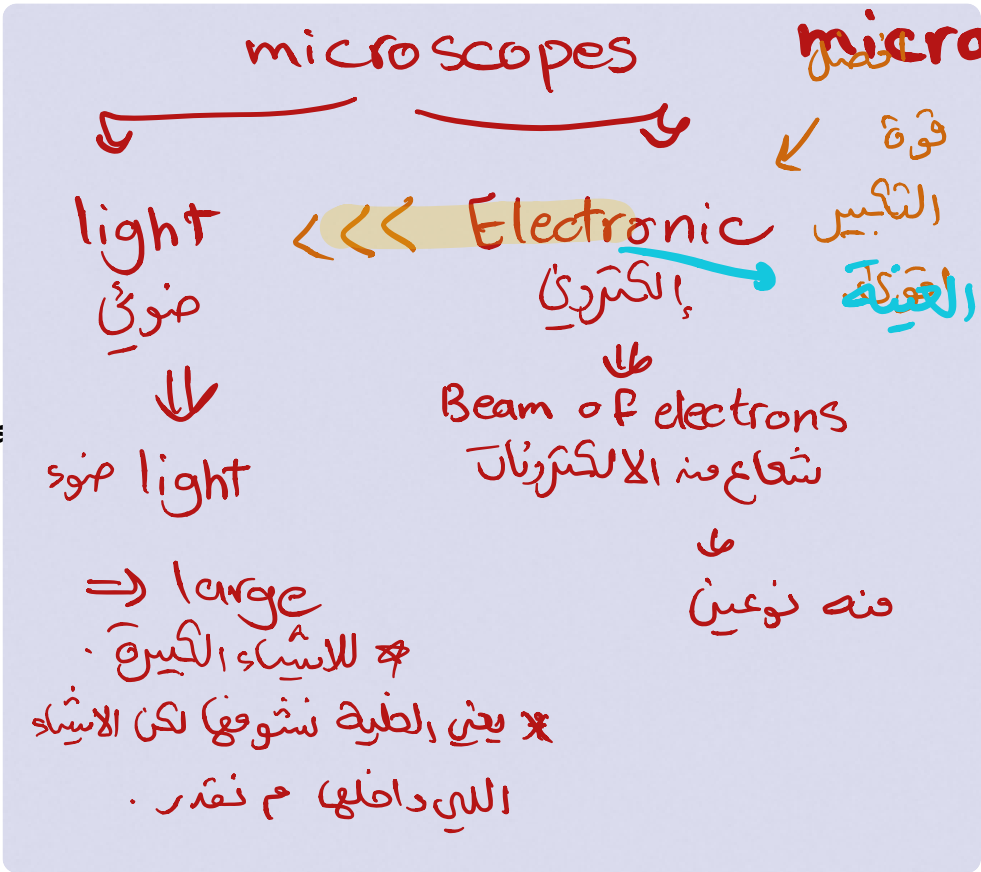 microscopes
micro
افضل
قوة
التكبير
العينة
light
Electronic
ضوئي
إلكتروني
Beam of electrons
light ضوء
شعاع من الالكترونات
منه نوعين
⇒ large
* للاشياء الكبيرة .
* يعني الخلية نشوفها لكن الاشياء
اللي داخلها م نقدر .